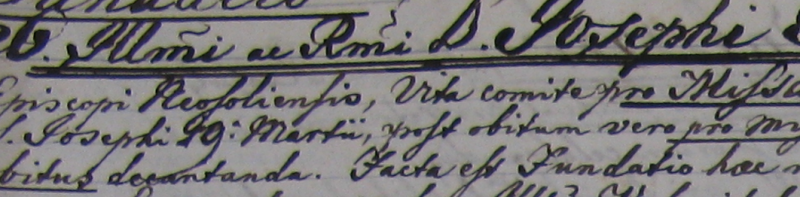 Illmi ac Rmi D. Josephi
Episcopi Neosoliensis, Vita comite pro Missa
S. Josephi 19. Martii, post obitum vero pro
obitus decantanda. Facta est Fundatio haec